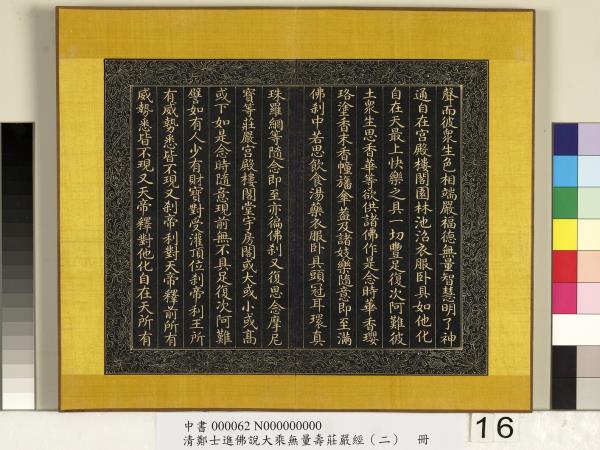 聲而彼衆生色相端嚴福德無量智慧明了神
通自在宮殿樓閣園林池沼衣服卧具如他化
自在天最上快樂之具一切豐足復次阿難彼
土衆生思香華等欲供諸佛作是念時華香瓔
珞塗香末香幢旛傘蓋及諸妓樂隨意即至滿
佛刹中若思飲食湯藥衣服卧具頭冠耳環真
珠羅網等隨念即至亦徧佛刹又復思念摩尼
寶等莊嚴宮殿樓閣堂宇房閣或大或小或高
或下如是念時隨意現前無不具足復次阿難
譬如有人少有財寶對受灌頂位刹帝利王所
有威勢悉皆不現又刹帝利對天帝釋前所有
威勢悉皆不現又天帝釋對他化自在天所有
中書 000062 N000000000
清鄭士進佛說大乘無量壽莊嚴經（二） 冊
16